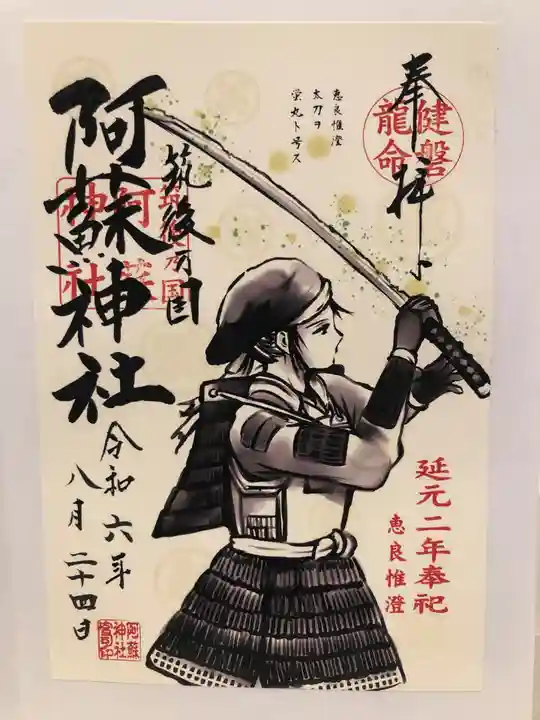 奉拝
健磐
龍命
恵良惟澄
太刀ヲ
蛍丸ト号ス
筑後乃国
阿蘇神社
延元二年奉祀
恵良惟澄
令和六年
八月二十四日
阿蘇
神社